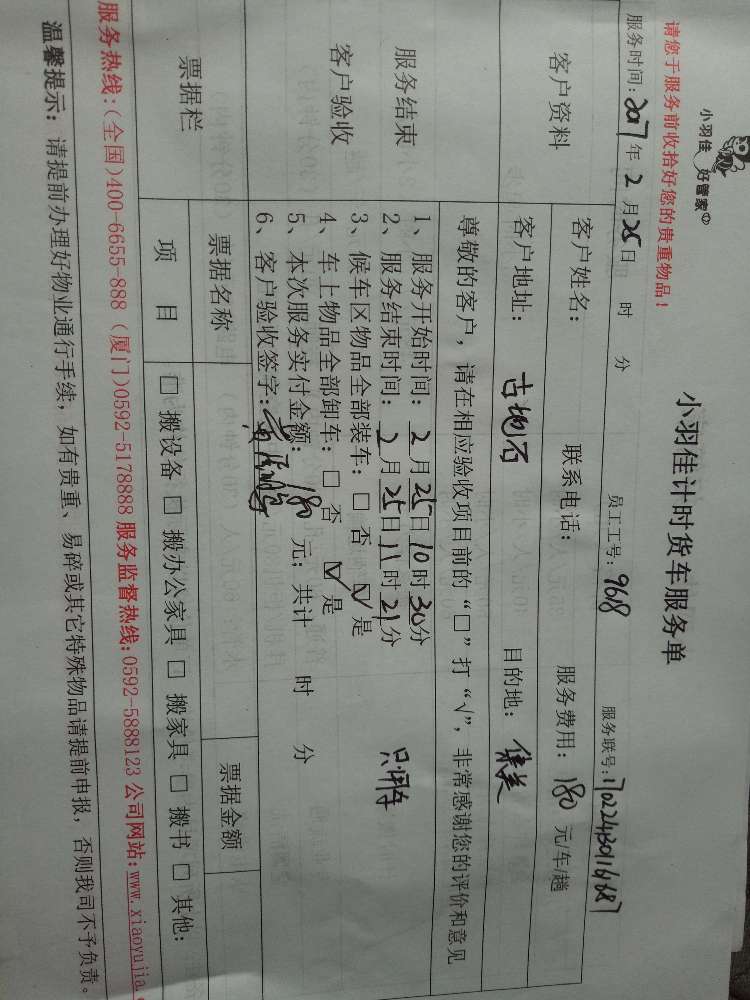 小羽佳 好管家
小羽佳计时货车服务单
请您于服务前收拾好您的贵重物品！
服务时间：2017年2月25日 时 分 员工工号：9618 服务联号：
客户资料
客户姓名： 联系电话： 服务费用：180元/车/趟
客户地址：古地石 目的地：集美
尊敬的客户，请在相应验收项目前的“□”打“√”，非常感谢您的评价和意见
服务结束
客户验收
1、服务开始时间：2月25日10时30分
2、服务结束时间：2月25日11时21分
3、候车区物品全部装车：□ 否 ☑ 是
4、车上物品全部卸车：□ 否 ☑ 是
5、本次服务实付金额：180元；共计 时 分
6、客户验收签字：
票据栏
票据名称 票据金额
项 目 □ 搬设备 □ 搬办公家具 □ 搬家具 □ 搬书 □ 其他：
服务热线：(全国)400-6655-888 (厦门)0592-5178888 服务监督热线：0592-5888123 公司网站：www.xiaoyujia.
温馨提示：请提前办理好物业通行手续，如有贵重、易碎或其它特殊物品请提前申报，否则我司不予负责。